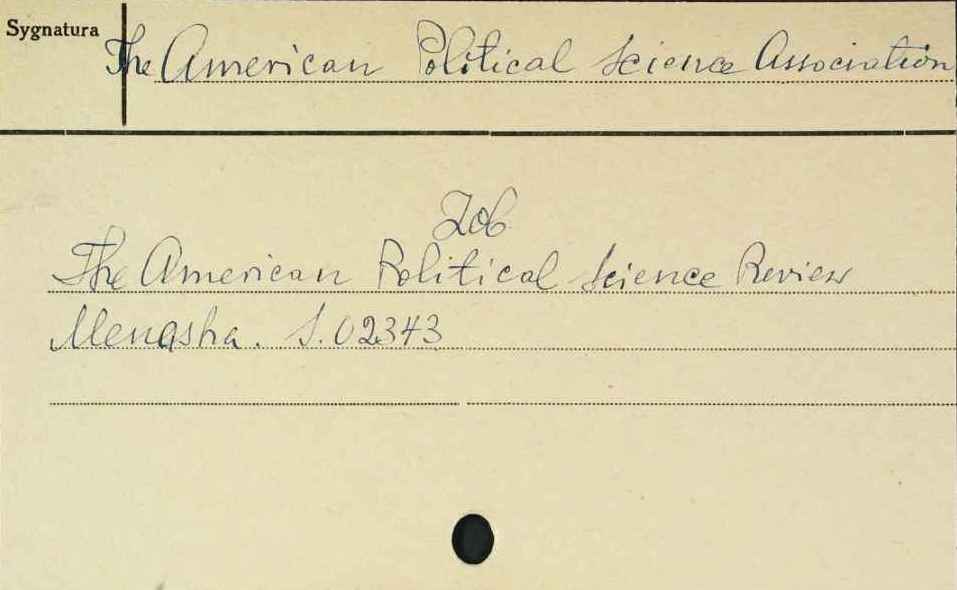 Sygnatura
The American Political Science Association
Zob
The American Political Science Review
Menasha. S. 02343